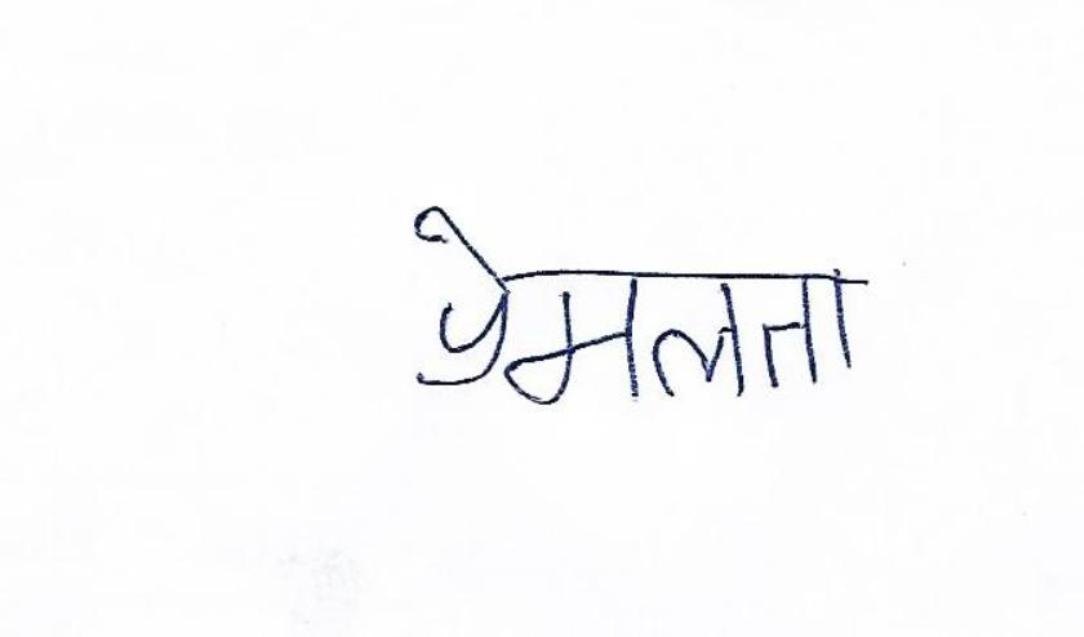 प्रेमलता